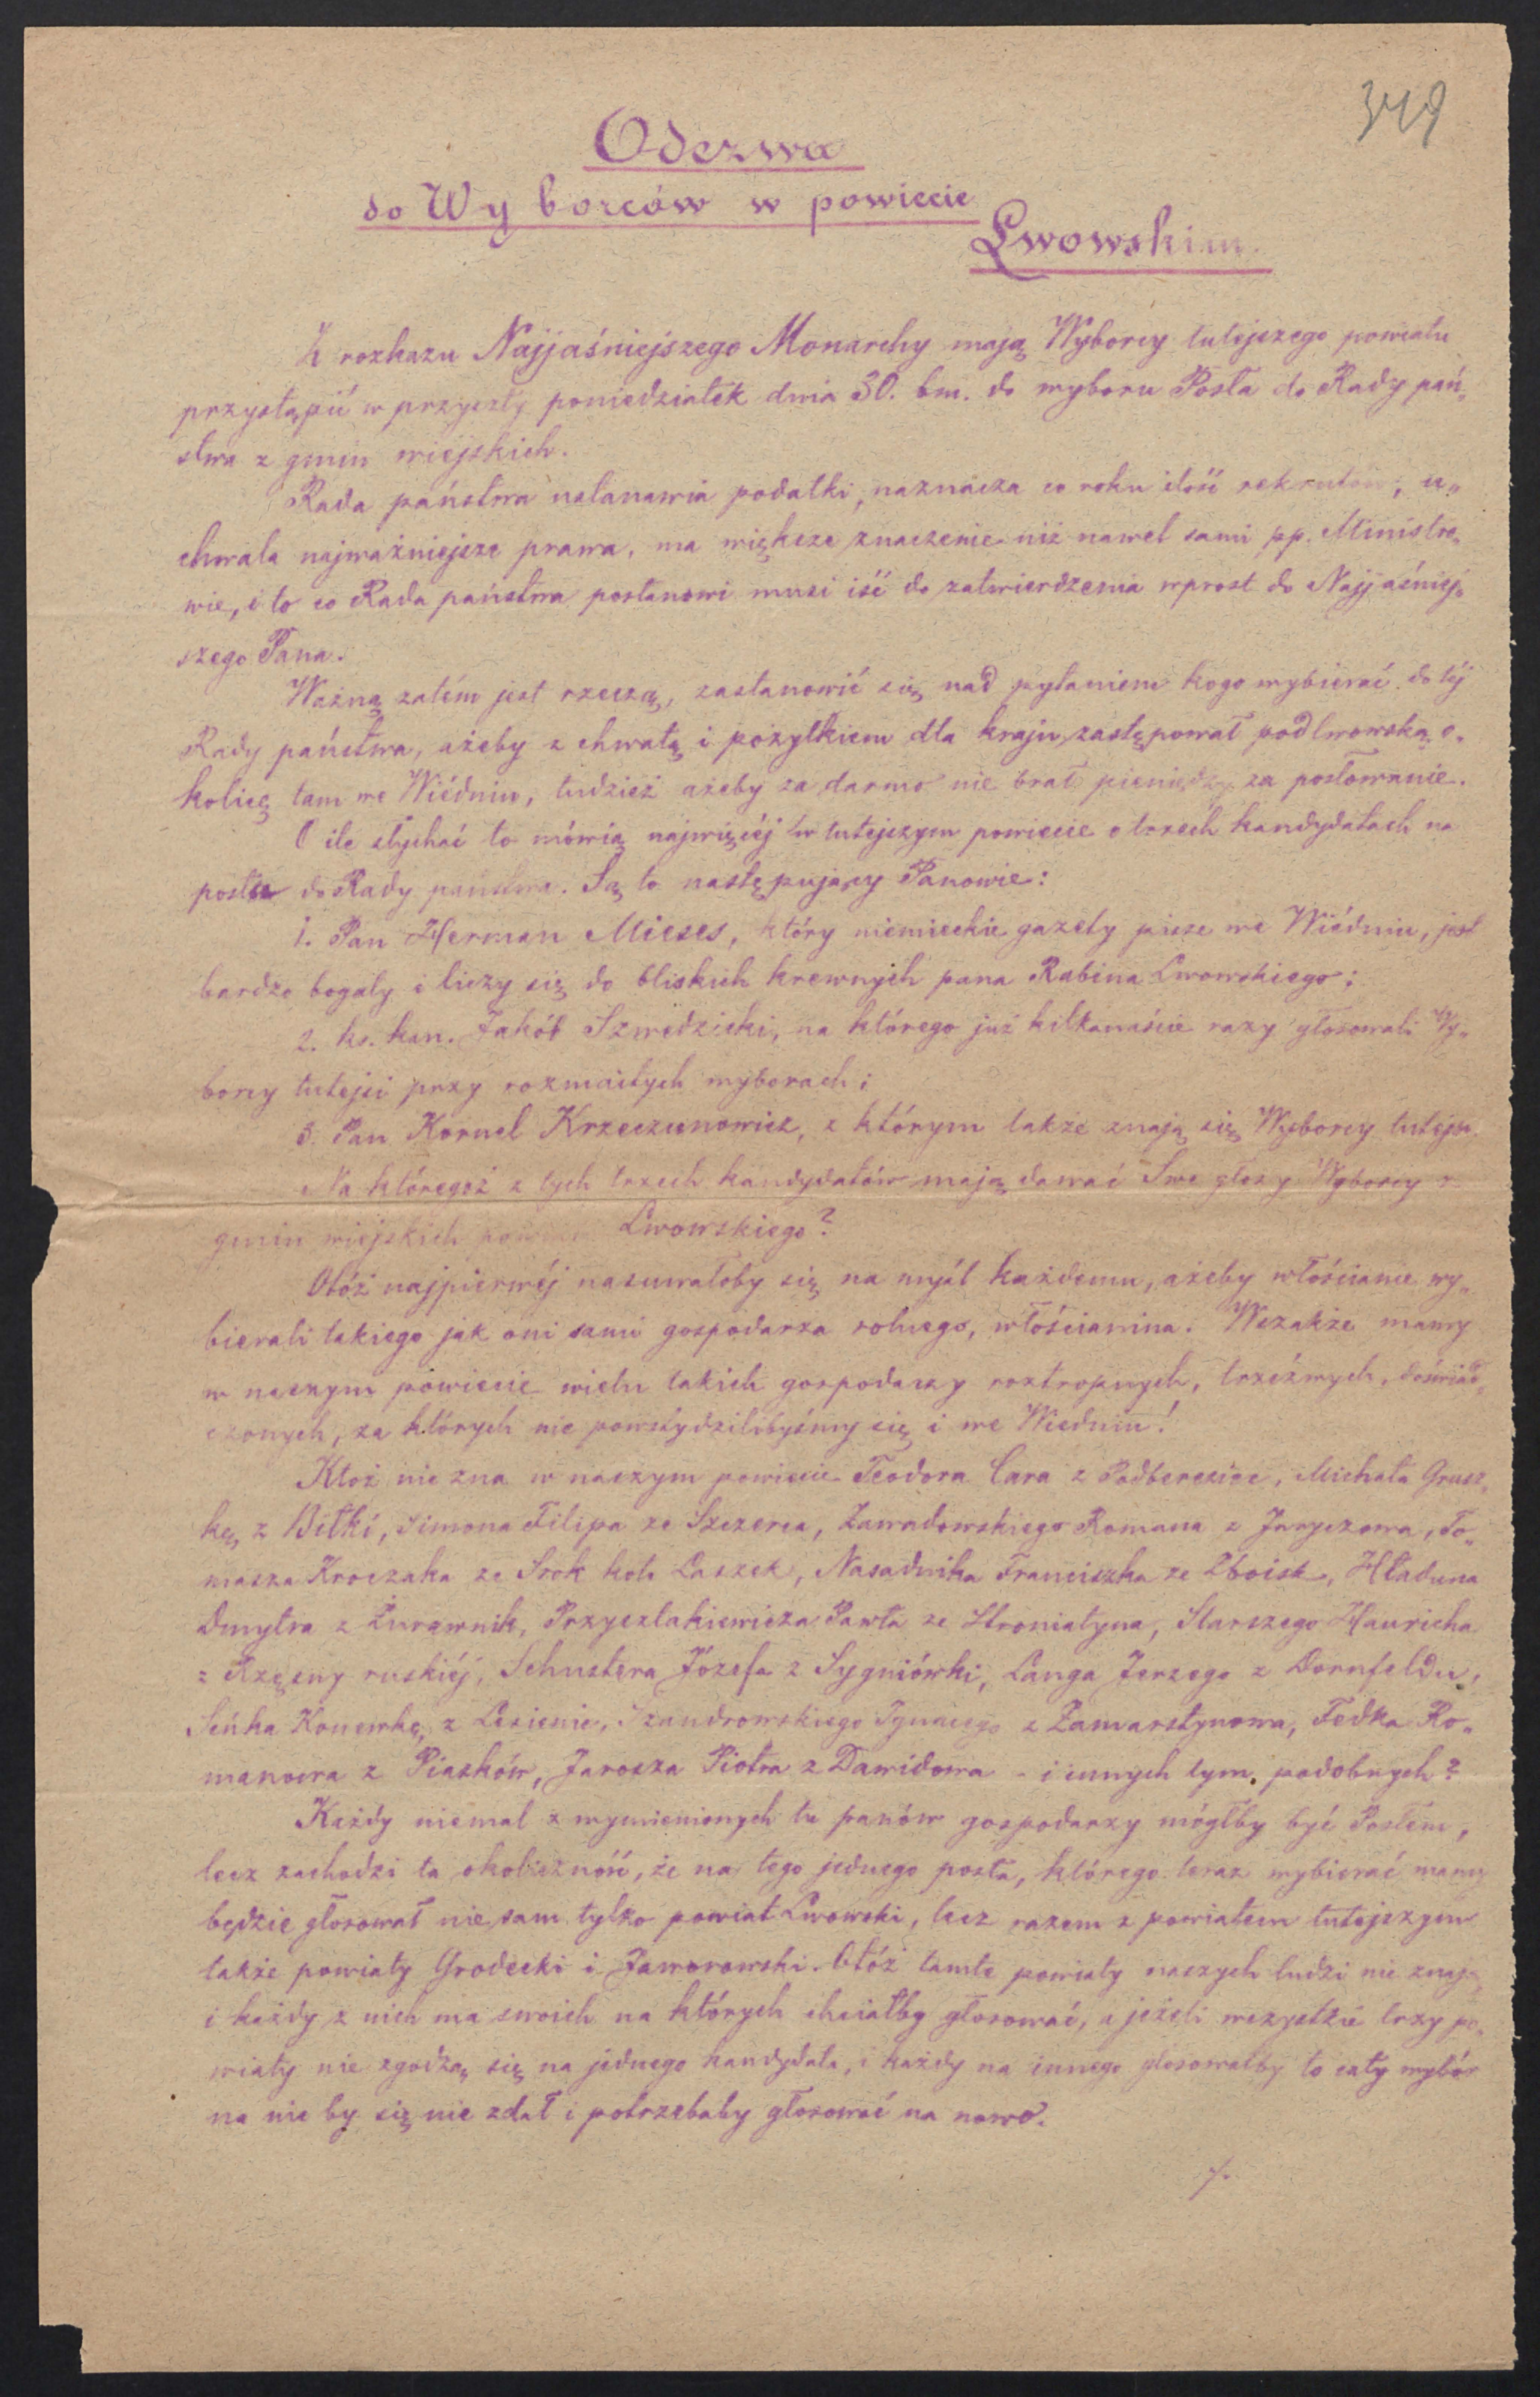 349
Odezwa
do Wyborców w powiecie
Lwowskim.
Z rozkazu Najjaśniejszego Monarchy mają Wyborcy tutejszego powiatu
przystąpić w przyszły poniedziałek dnia 30. bm. do wyboru Posła do Rady pań„
stwa z gmin wiejskich.
Rada państwa ustanawia podatki, naznacza co roku ilość rekrutów, u„
chwala najważniejsze prawa, ma większe znaczenie niż nawet sami pp. Ministro„
wie, i to co Rada państwa postanowi musi iść do zatwierdzenia wprost do Najjaśniej„
szego Pana.
Ważną zatém jest rzeczą, zastanowić się nad pytaniem kogo wybierać do téj
Rady państwa, ażeby z chwałą i pożytkiem dla kraju zastępował podlwowską o„
kolicę tam we Wiédniu, tudzież ażeby za darmo nie brał pieniędzy za posłowanie.
O ile słychać to mówią najwięcéj w tutejszym powiecie o trzech kandydatach na
posła do Rady państwa. Są to następujący Panowie:
1. Pan Herman Mieses, który niemieckie gazety pisze we Wiédniu, jest
bardzo bogaty i liczy się do bliskich krewnych pana Rabina Lwowskiego;
2. ks. kan. Jakób Szwedzicki, na którego już kilkanaście razy głosowali Wy„
borcy tutejsi przy rozmaitych wyborach;
3. Pan Kornel Krzeczunowicz, z którym także znają się Wyborcy tutejsi.
Na któregoż z tych trzech kandydatów mają dawać Swe głosy Wyborcy z
gmin wiejskich powiatu Lwowskiego?
Otóż najpierwéj nasuwałoby się na myśl każdemu, ażeby włościanie wy„
bierali takiego jak oni sami gospodarza rolnego, włościanina. Wszakże mamy
w naszym powiecie wielu takich gospodarzy roztropnych, trzeźwych, doświad„
czonych, za których nie powstydzilibyśmy się i we Wiedniu!
Któż nie zna w naszym powiecie Teodora Cara z Podberezice, Michała Grusz„
kę z Biłki, Simona Filipa ze Szczerca, Zawadowskiego Romana z Jaryczowa, To„
masza Kroczaka ze Srok koło Laszek, Nasadnika Franciszka ze Zboisk, Hładuna
Dmytra z Żurawnik, Przyszlakiewicza Pawła ze Stroniatyna, Starszego Hauricha
z Rzęsny ruskiéj, Schustera Józefa z Sygniówki, Langa Jerzego z Dornfeldu,
Seńka Konewkę z Lesienic, Szandrowskiego Ignacego z Zamarstynowa, Fedka Ro„
manowa z Piasków, Jarosza Piotra z Dawidowa - i innych tym podobnych?
Każdy niemal z wymienionych tu panów gospodarzy mógłby być Posłem,
lecz zachodzi ta okoliczność, że na tego jednego posła, którego teraz wybierać mamy
będzie głosował nie sam tylko powiat Lwowski, lecz razem z powiatem tutejszym
także powiaty Grodecki i Jaworowski. Otóż tamte powiaty naszych ludzi nie znają
i każdy z nich ma swoich na których chciałby głosować, a jeżeli wszystkie trzy po„
wiaty nie zgodzą się na jednego kandydata, i każdy na innego głosowałby to cały wybór
na nic by się nie zdał i potrzebaby głosować na nowo.
./.